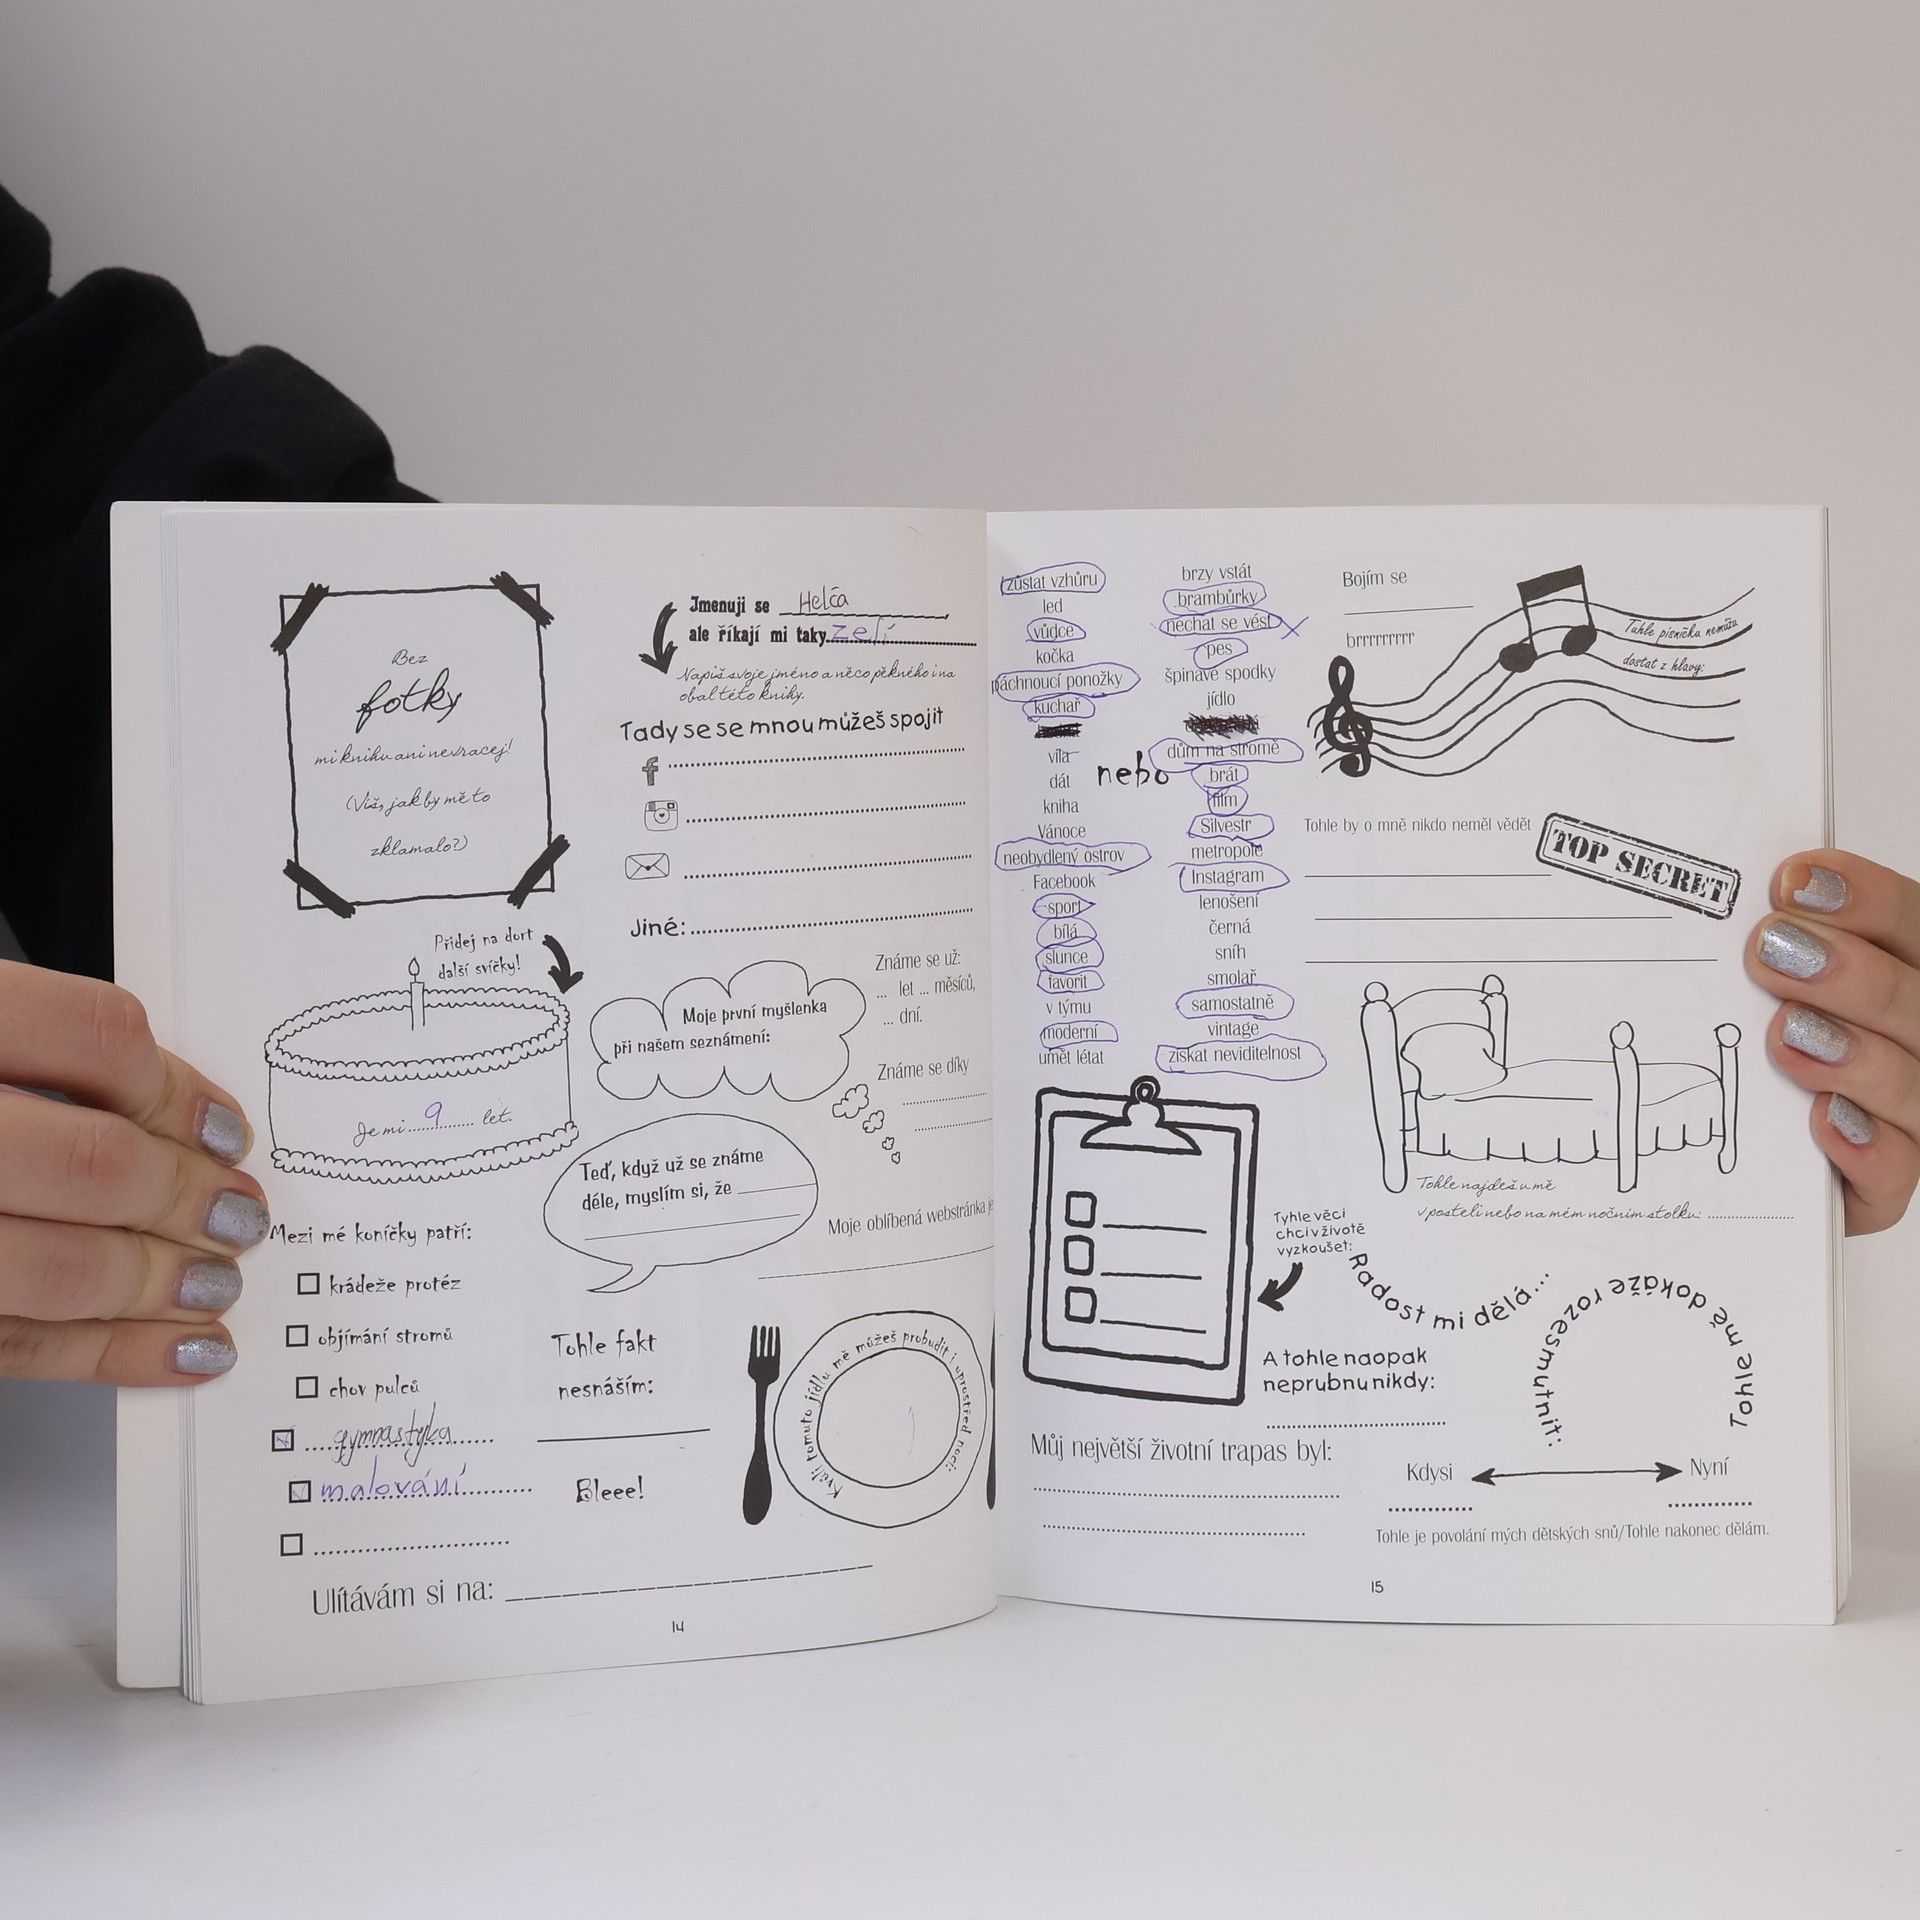 Bez
fotky
mi knihu ani nevracej!
(Víš, jak by mě to
zklamalo?)
Jmenuji se Helča
ale říkají mi taky zelí
Napiš svoje jméno a něco pěkného i na
obal této knihy.
Tady se se mnou můžeš spojit
Jiné:
Přidej na dort
další svíčky!
Je mi 9 let.
Moje první myšlenka
při našem seznámení:
Známe se už:
... let ... měsíců,
... dní.
Známe se díky
Teď, když už se známe
déle, myslím si, že
Moje oblíbená webstránka je
Mezi mé koníčky patří:
krádeže protéz
objímání stromů
chov pulců
gymnastyka
malování
Tohle fakt
nesnáším:
Bleee!
Kvůli tomuto jídlu mě můžeš probudit i uprostřed noci:
Ulítávám si na:
14
zůstat vzhůru
led
vůdce
kočka
páchnoucí ponožky
kuchař
víla
dát
kniha
Vánoce
neobydlený ostrov
Facebook
sport
bílá
slunce
favorit
v týmu
moderní
umět létat
nebo
brzy vstát
brambůrky
nechat se vést
pes
špinavé spodky
jídlo
dům na stromě
brát
film
Silvestr
metropole
Instagram
lenošení
černá
sníh
smolař
samostatně
vintage
získat neviditelnost
Bojím se
brrrrrrrrr
Tuhle písničku nemůžu
dostat z hlavy:
Tohle by o mně nikdo neměl vědět
TOP SECRET
Tohle najdeš u mě
v posteli nebo na mém nočním stolku:
Tyhle věci
chci v životě
vyzkoušet:
Radost mi dělá...
Tohle mě dokáže rozesmutnit:
A tohle naopak
neprubnu nikdy:
Můj největší životní trapas byl:
Kdysi
Nyní
Tohle je povolání mých dětských snů/Tohle nakonec dělám.
15